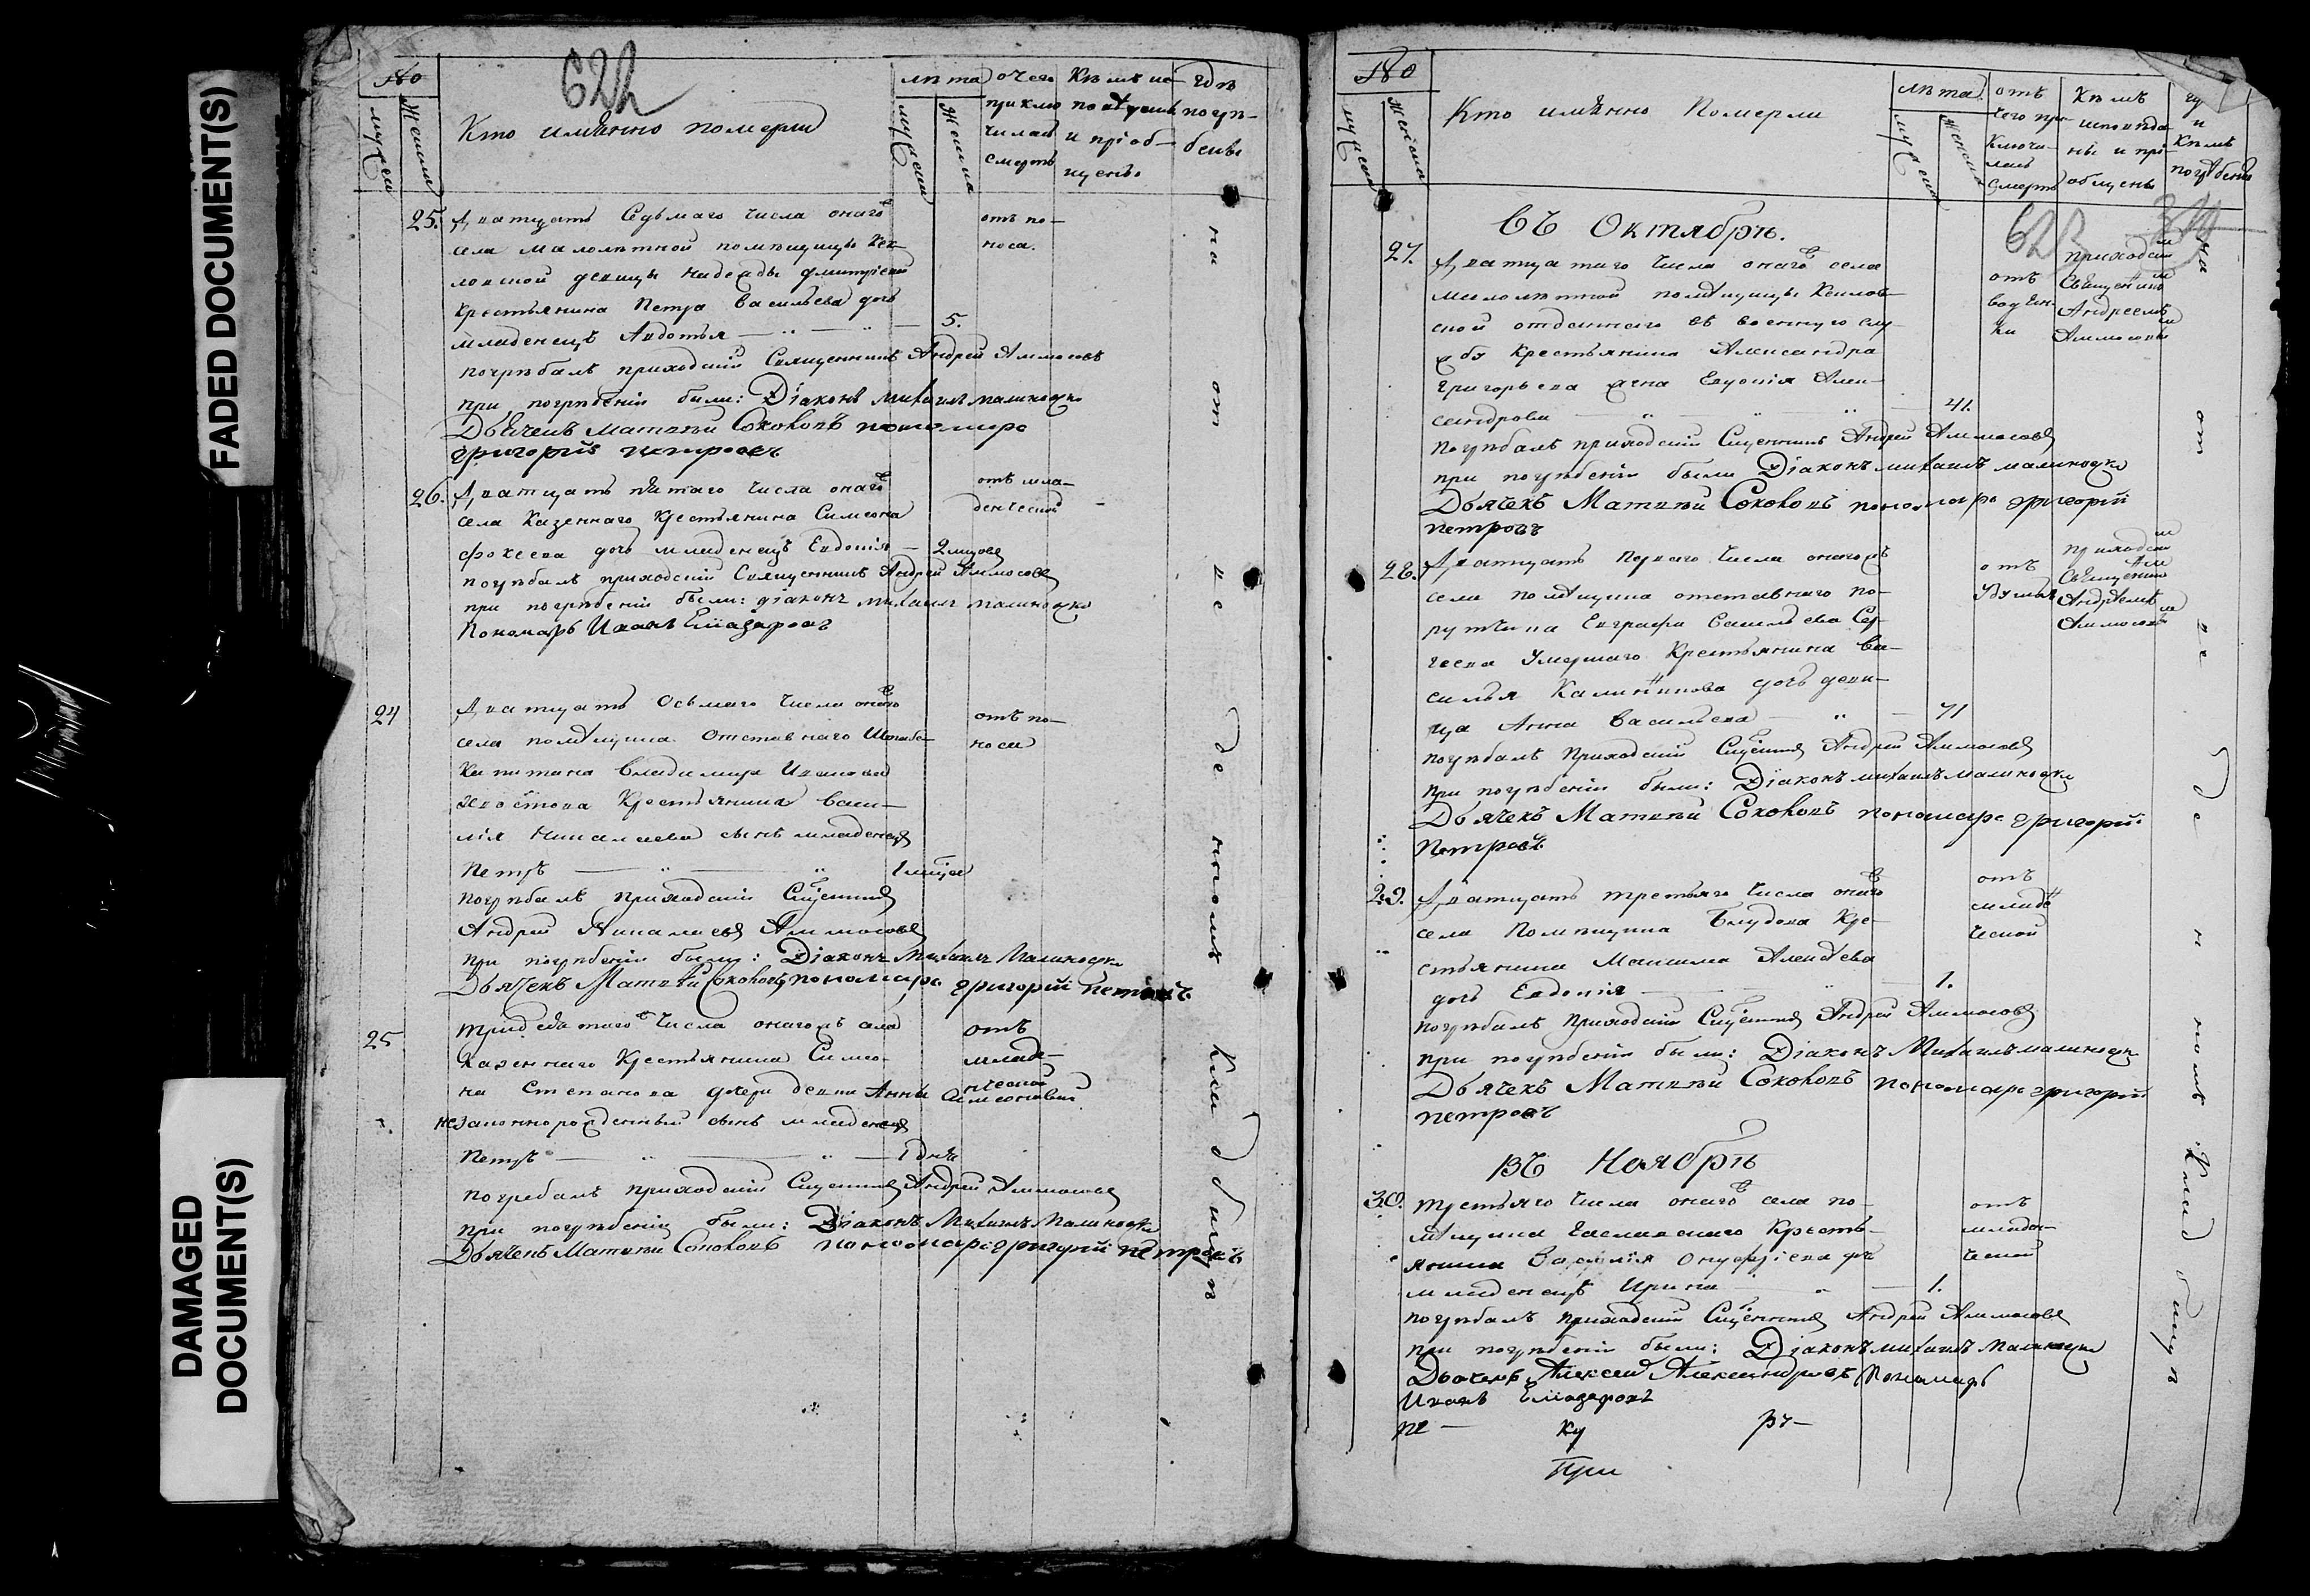 FADED DOCUMENT(S)
DAMAGED
DOCUMENT(S)
622
№
мужеск
женски
Кто имянно померли
лѣта
мужески
женска
отчего
приклю
чилась
смерть
Кѣмъ ис
поведуны
и пріоб-
щены
гдѣ
погрѣ-
бены
25. Дватцать седьмаго числа онагожъ
села малолѣтной помѣщицы Кек
ловской девицы надежды дмитріевой
крестьянина Петра васильева дочь
младенецъ Авдотья — 5.
отъ по-
носа.
погрѣбалъ приходскій Священникъ Андрей Аммосовъ
при погрѣбеніи были: Діаконъ михаилъ малиновски
Дьячекъ Матвѣй Соколовъ пономарь
григорій петровъ
26. Дватцать пятаго числа онагожъ
села казеннаго крестьянина Симеона
фокеева дочь младенецъ Евдокія — 2 мцовъ
отъ мла-
денческой
погрѣбалъ приходскій Священникъ Андрей Аммосовъ
при погрѣбеніи были: діаконъ михаилъ малиновски
Пономарь Иванъ Елиазаровъ
24 Дватцать Осьмаго числа онагожъ
села помѣщика Отставнаго Штабсъ
капитана Владимира Иванова
хвостова крестьянина васи-
лія николаева сынъ младенецъ
Петръ — 1 мцa
отъ по-
носа
погрѣбалъ приходскій Сщенникъ
Андрей Николаевъ Аммосовъ
при погрѣбеніи были: Діаконъ Михаилъ Малиновски
Дьячекъ Матвѣй Соколовъ, пономарь григорій петровъ
25 тридцатаго числа онагожъ села
казеннаго крестьянина Симео-
на Степанова дочери девки Анны Симеоновой
незаконнорожденный сынъ младенецъ
Петръ — 1 дня
отъ
младе-
нческой
погребалъ приходскій Сщенникъ Андрей Аммосовъ
при погрѣбеніи были: Діаконъ Михаилъ Малиновски
Дьячекъ Матвѣй Соколовъ пономарь григорій петровъ
на отведенномъ кладбищѣ
№
мужеск
женска
Кто имянно Померли
лѣта
мужески
женска
отъ
чего при
ключи-
лась
смерть
Кѣмъ
исповѣда
ны и прі-
общены
гд
и
кѣмъ
погрѣбены
623
Въ Октябрѣ.
27. Дватцатаго числа онагожъ села
малолѣтной помѣщицы Кеклов-
ской отданнаго въ военную слу-
жбу крестьянина Александра
григорьева жена Евдокія Алек-
сандрова — 41.
отъ
водян-
ки
приходским
Священником
Андреемъ
Аммосовым
погрѣбалъ приходскій Сщенникъ Андрей Аммосовъ
при погрѣбеніи были Діаконъ михаилъ малиновски
Дьячекъ Матвѣй Соколовъ пономарь григорій
петровъ
28. Дватцать перваго числа онагожъ
села помѣщика отставнаго по-
рутчика Евграфа Васильева Сер-
геева умершаго крестьянина ва-
силья Калинникова дочь деви-
ца Анна васильева — 71
отъ
удушья
приходским
Священником
Андреемъ
Аммосовым
погрѣбалъ приходскій Сщенникъ Андрей Аммосовъ
при погрѣбеніи были: Діаконъ михаилъ малиновски
Дьячекъ Матвѣй Соколовъ пономарь григорій
Петровъ.
29. Дватцать третьяго числа онагожъ
села помѣщика Блудова кре-
стьянина Максима Алексѣева
дочь Евдокія — 1.
отъ
младен
ческой
погрѣбалъ приходскій Сщенникъ Андрей Аммосовъ
при погрѣбеніи были: Діаконъ Михаилъ малиновски
Дьячекъ Матвѣй Соколовъ пономарь григорій
петровъ
Въ Ноябрѣ
30. третьяго числа онагожъ села по-
мѣщика Чаславскаго кресть-
янина Василія Онуфріева дчь
младенецъ Ирина — 1.
отъ
младен-
ческой
погрѣбалъ приходскій Сщенникъ Андрей Аммосовъ
при погрѣбеніи были: Діаконъ михаилъ малиновски
Дьячекъ Алексей Александровъ Пономарь
Иванъ Елиазаровъ
ку
При
на отведенномъ кладбищѣ